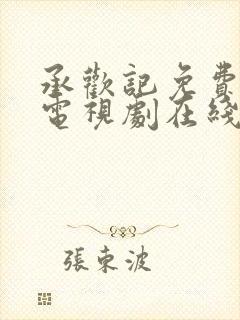 承歡記免費
電視劇在綫
張東波